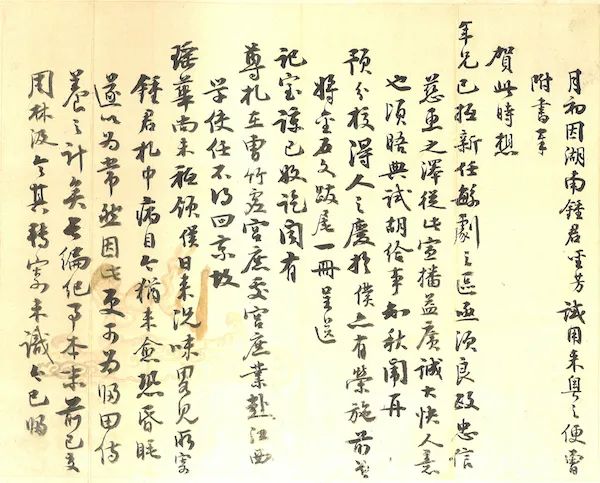 月初因湖南鍾君芳試用來粵之便曾
附書奉
賀此時想
年兄已抵新任繁劇之區亟須良政忠信
慈惠之澤從此宣播益廣誠大快人意
也頃晤典試胡給事知秋闈再
預分校得人之慶於僕亦有榮施前
將金石文跋尾一冊呈送
記室諒已收訖聞有
尊札在曹竹虛宮庶處宮庶業赴江西
學使任不得回京故
瑤華尚未祗領僕日來況味畧見於寄
鍾君札中病目今猶未愈恐昏眊
遂以為常然因此更可為歸田侍
養之計矣長編紀事本末前已交
周林汲令其轉寄未識今已歸